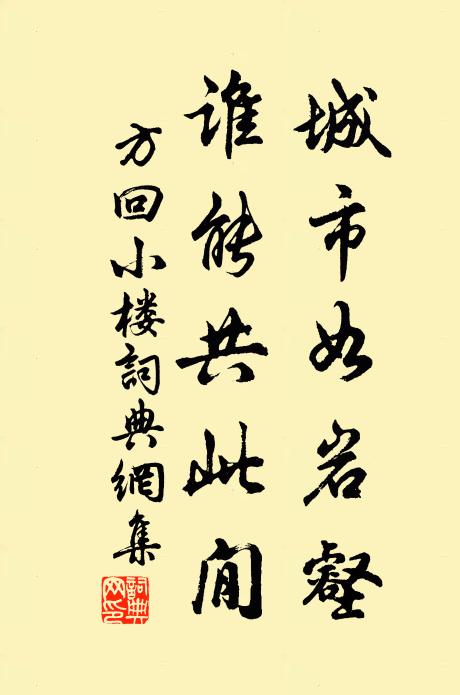 城市如岩壑
誰能共此閒
方回小楼詞典網集
詞典
网印